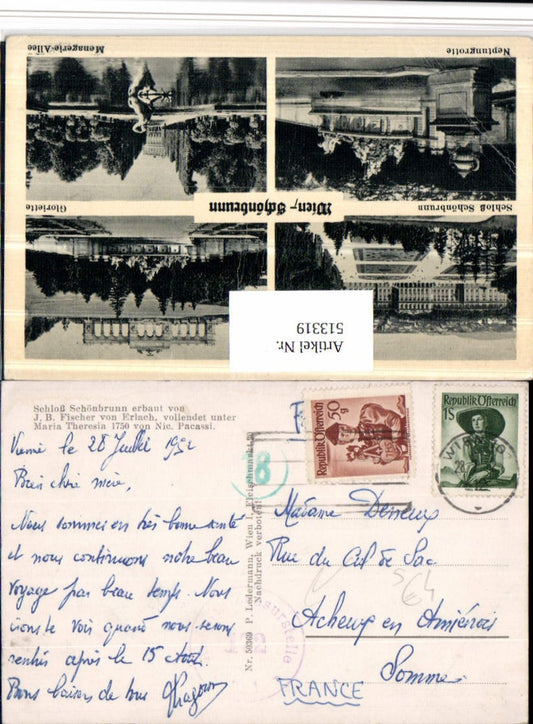 Menagerie-Allee
Neptungrotte
Wien, Schönbrunn
Gloriette
Schloß Schönbrunn
Artikel Nr.
513319
Schloß Schönbrunn erbaut von
J. B. Fischer von Erlach, vollendet unter
Maria Theresia 1750 von Nic. Pacassi.
Vienne le 28 Juillet 1952
Bien chère mère,
Nous sommes en très bonne santé
et nous continuons notre beau
voyage par beau temps. Nous
vois quand nous serons
rentrés après le 15 Août.
Bons baisers de tous
Nr. 50369 P. Ledermann, Wien I, Fleischmarkt
Nachdruck verboten!
8
50
g
Republik Österreich
Republik Österreich
1 S
WIEN
28
Madame
Rue du Cul de Sac
Acheux en Amiénois
Somme
FRANCE